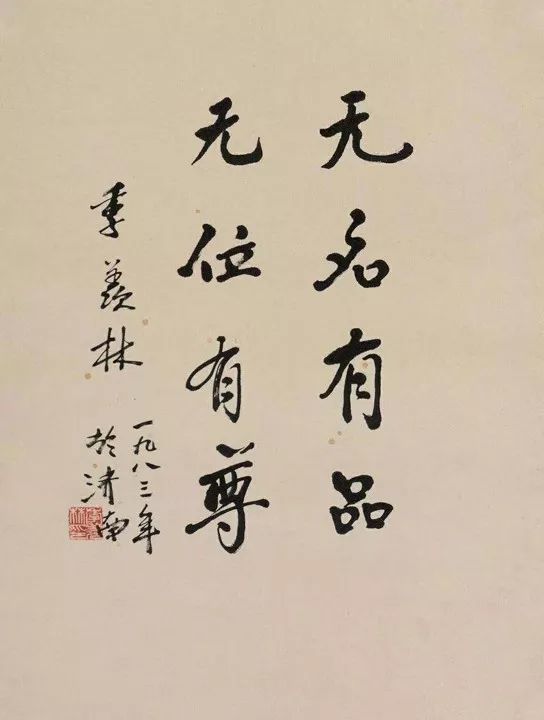 无名有品
无位有尊
季羡林
一九八三年
于济南